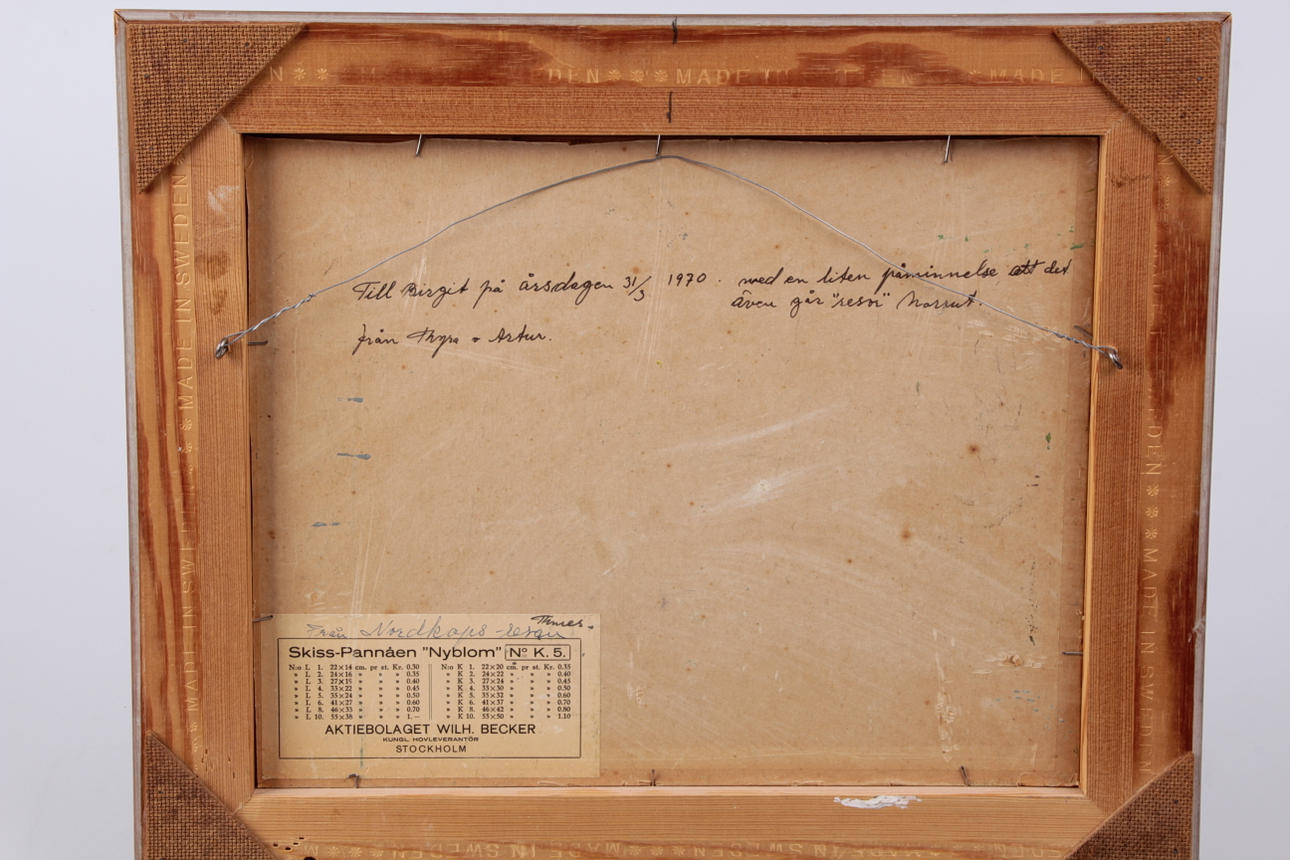 MADE IN SWEDEN
Till Birgit på årsdagen 31/3 1970. med en liten påminnelse att det
även går "resor" Norrut.
från Thyra o Artur.
Från Nordkaps-resan
Skiss-Pannåen "Nyblom" No K. 5.
N:o L 1. 22×14 cm. pr st. Kr. 0.30 N:o K 1. 22×20 cm. pr st. Kr. 0.35
» L 2. 24×16 » » » 0.35 » K 2. 24×22 » » » 0.40
» L 3. 27×19 » » » 0.40 » K 3. 27×24 » » » 0.45
» L 4. 33×22 » » » 0.45 » K 4. 33×30 » » » 0.50
» L 5. 35×24 » » » 0.50 » K 5. 35×32 » » » 0.60
» L 6. 41×27 » » » 0.60 » K 6. 41×37 » » » 0.70
» L 8. 46×33 » » » 0.70 » K 8. 46×42 » » » 0.80
» L 10. 55×38 » » » 1.— » K 10. 55×50 » » » 1.10
AKTIEBOLAGET WILH. BECKER
KUNGL. HOVLEVERANTÖR
STOCKHOLM